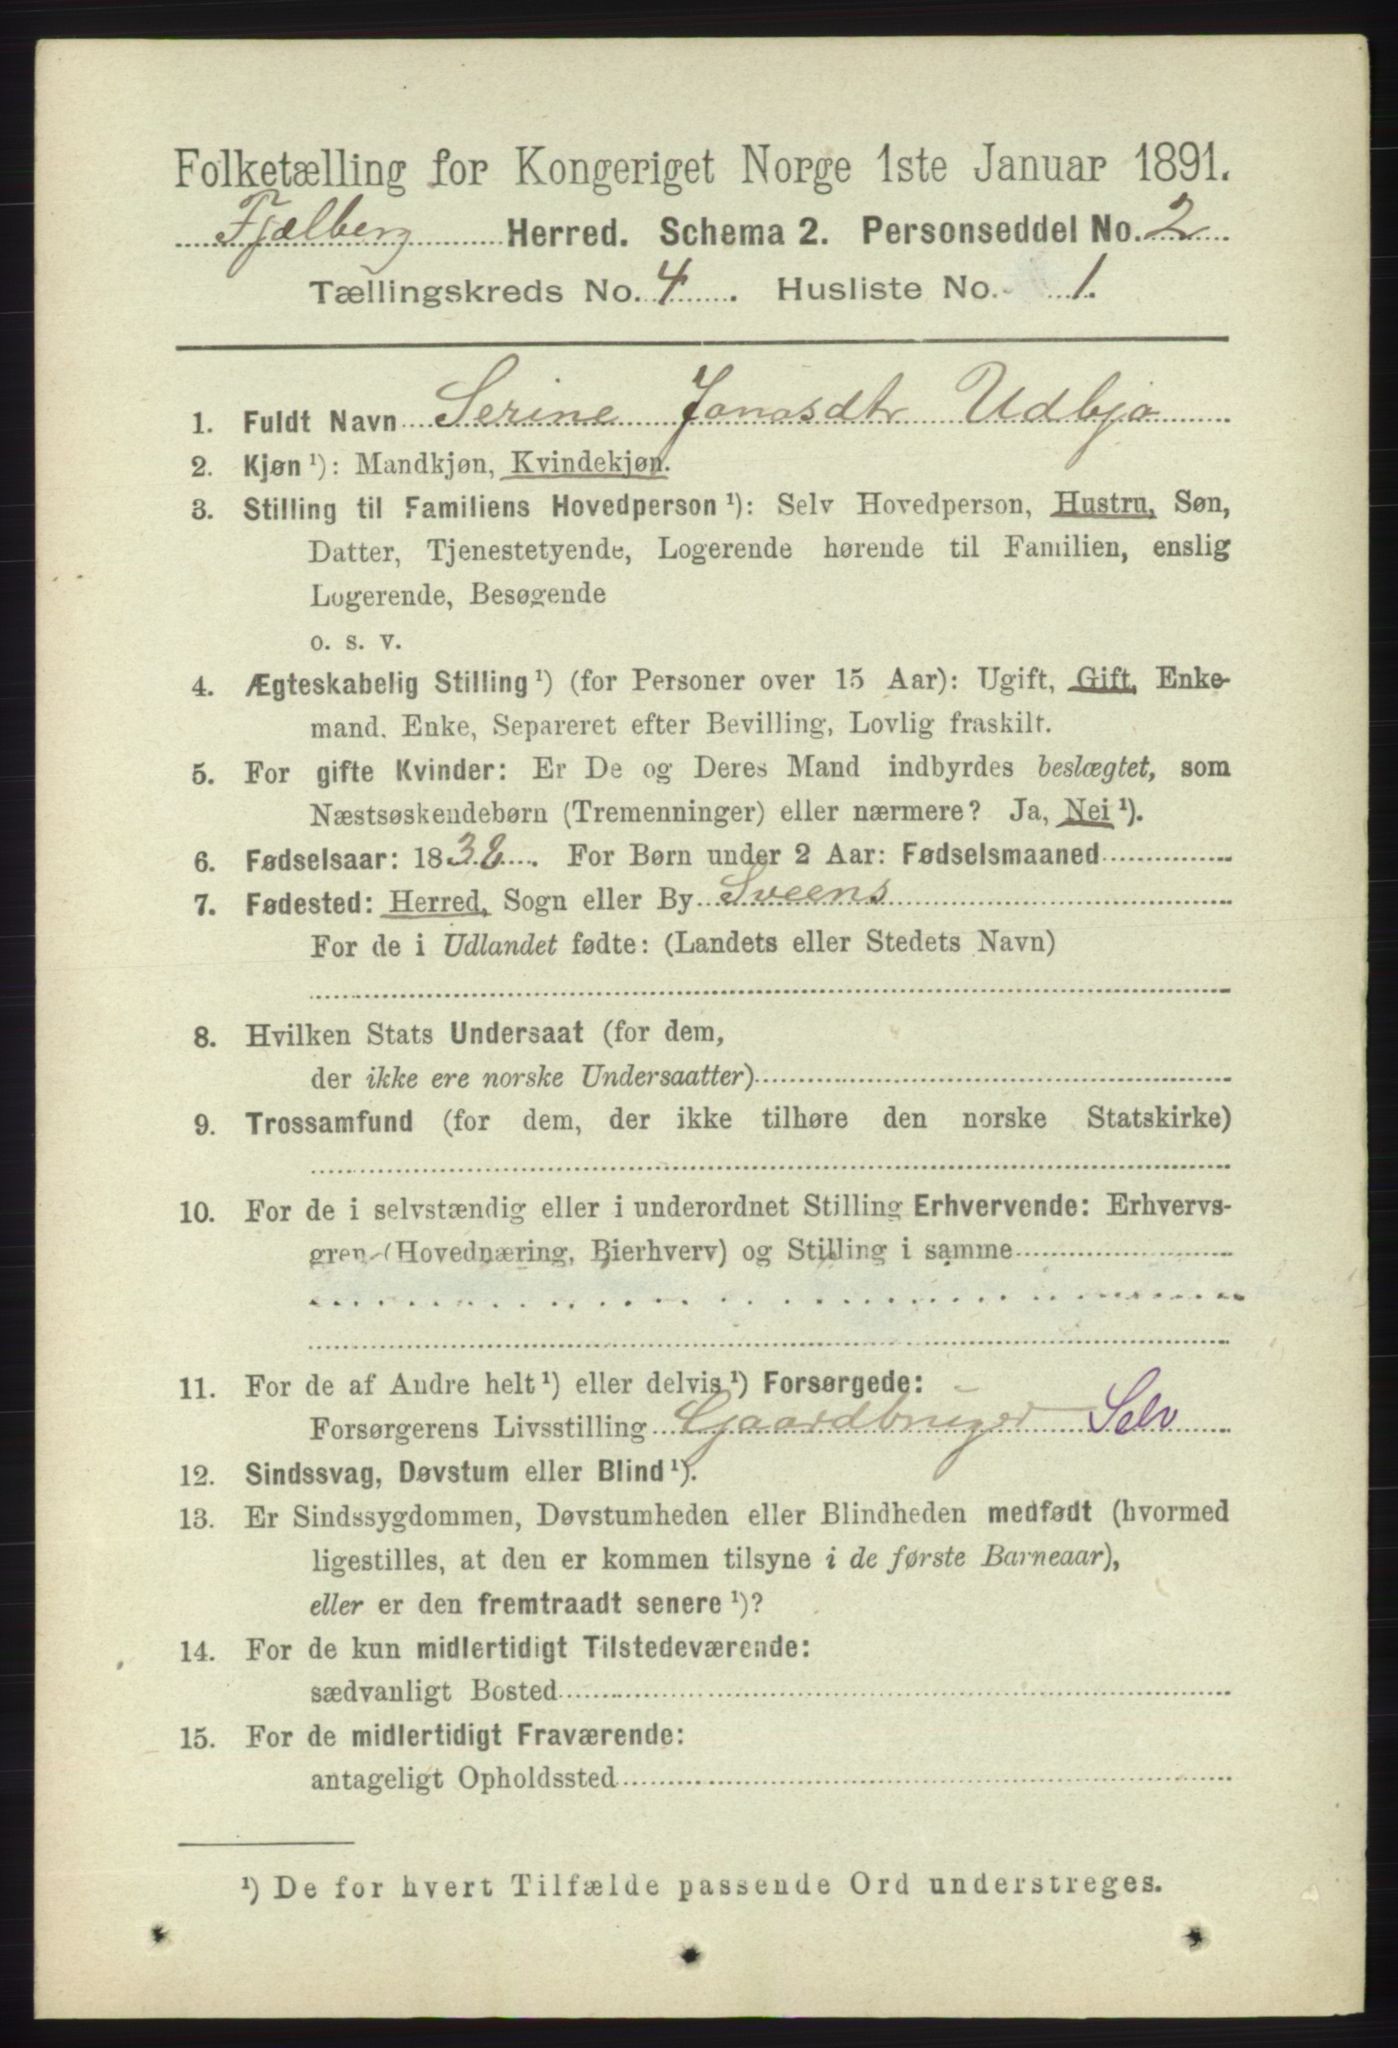 Folketælling for Kongeriget Norge 1ste Januar 1891.
Fjælberg Herred. Schema 2. Personseddel No. 2
Tællingskreds No. 4. Husliste No. 1.
1. Fuldt Navn Serine Jonasdtr Udbjo
2. Kjøn ¹): Mandkjøn, Kvindekjøn.
3. Stilling til Familiens Hovedperson ¹): Selv Hovedperson, Hustru, Søn,
Datter, Tjenestetyende, Logerende hørende til Familien, enslig
Logerende, Besøgende
o. s. v.
4. Ægteskabelig Stilling ¹) (for Personer over 15 Aar): Ugift, Gift, Enke-
mand, Enke, Separeret efter Bevilling, Lovlig fraskilt.
5. For gifte Kvinder: Er De og Deres Mand indbyrdes beslægtet, som
Næstsøskendebørn (Tremenninger) eller nærmere? Ja, Nei ¹).
6. Fødselsaar: 1838. For Børn under 2 Aar: Fødselsmaaned
7. Fødested: Herred, Sogn eller By Sveens
For de i Udlandet fødte: (Landets eller Stedets Navn)
8. Hvilken Stats Undersaat (for dem,
der ikke ere norske Undersaatter)
9. Trossamfund (for dem, der ikke tilhøre den norske Statskirke)
10. For de i selvstændig eller i underordnet Stilling Erhvervende: Erhvervs-
gren (Hovednæring, Bierhverv) og Stilling i samme
11. For de af Andre helt ¹) eller delvis ¹) Forsørgede:
Forsørgerens Livsstilling Gaardbruger Selv
12. Sindssvag, Døvstum eller Blind ¹).
13. Er Sindssygdommen, Døvstumheden eller Blindheden medfødt (hvormed
ligestilles, at den er kommen tilsyne i de første Barneaar),
eller er den fremtraadt senere ¹)?
14. For de kun midlertidigt Tilstedeværende:
sædvanligt Bosted
15. For de midlertidigt Fraværende:
antageligt Opholdssted
¹) De for hvert Tilfælde passende Ord understreges.